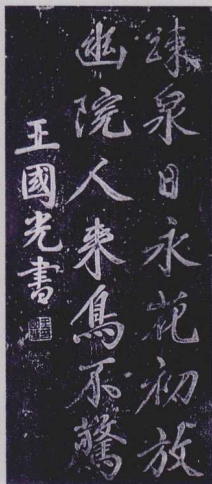 疎泉日永花初放
幽院人來鳥不驚
王國光書